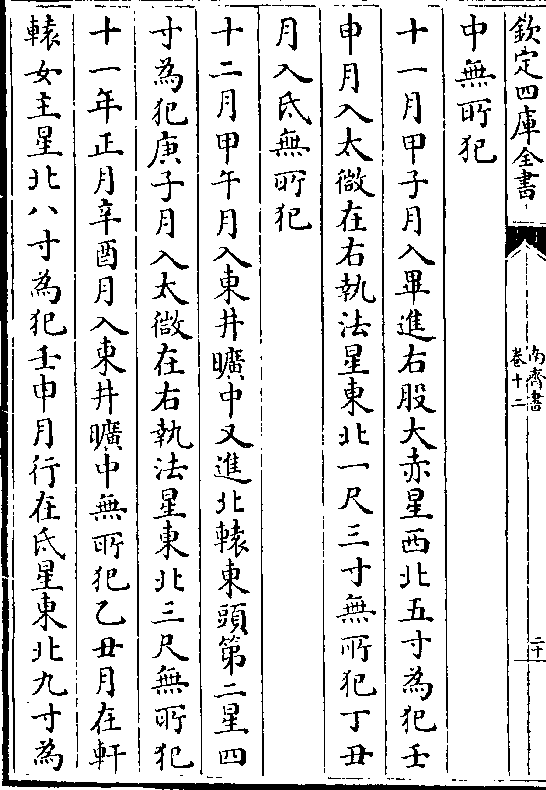 欽定四庫全書
南齊書
卷十二
二十
中無所犯
十一月甲子月入畢進右股大赤星西北五寸為犯壬
申月入太微在右執法星東北一尺三寸無所犯丁丑
月入氐無所犯
十二月甲午月入東井曠中又進北轅東頭第二星四
寸為犯庚子月入太微在右執法星東北三尺無所犯
十一年正月辛酉月入東井曠中無所犯乙丑月在軒
轅女主星北八寸為犯壬申月行在氐星東北九寸為